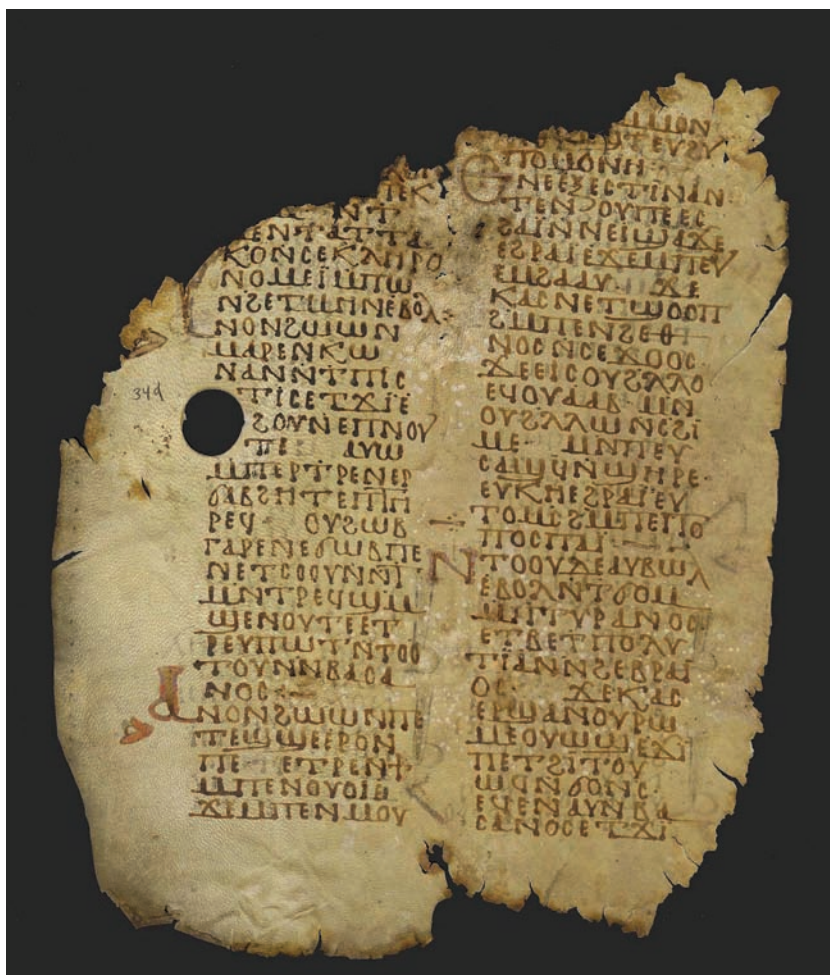 ⲡⲉⲕ
ⲉⲛⲧⲁⲧⲧⲁ
ⲕⲟⲛⲥⲉⲕⲗⲏⲣⲟ
ⲛⲟⲙⲉⲓⲙⲡⲱ
ⲛϩⲉⲧⲙⲏⲛⲉⲃⲟⲗ
ⲛⲟⲛϩⲱⲱⲛ
ⲙⲁⲣⲉⲛⲕⲱ
ⲛⲁⲛⲛ̄ⲧⲡⲓⲥ
ⲧⲓⲥⲉⲧϫⲓⲉ̈
ϩⲟⲩⲛⲉⲡⲛⲟⲩ
ⲧⲉ ⲁⲩⲱ
ⲙ̄ⲡⲉⲣⲧⲣⲉⲛⲉⲣ
ϭⲁⲃϩⲏⲧⲉⲡⲏ
ⲣⲉϥ ⲟⲩϩⲱⲃ
ⲅⲁⲣⲉⲛⲉϭⲱⲃⲡⲉ
ⲛⲉⲧⲥⲟⲟⲩⲛⲛ̄ϯ
ⲙⲛ̄ⲧⲣⲉϥϣⲙ̄
ϣⲉⲛⲟⲩⲧⲉⲉⲧ
ⲣⲉⲩⲡⲱⲧⲛ̄ⲧⲟⲟ
ⲧⲟⲩⲛⲛⲃⲁⲥⲁ
ⲛⲟⲥ
ⲁⲛⲟⲛϩⲱⲱⲛⲡⲉ
ⲧⲉϣϣⲉⲉⲣⲟⲛ
ⲡⲉ ⲉⲧⲣⲉⲛϯ
ⲙ̄ⲡⲉⲛⲟⲩⲟⲓⲉ
ϫⲉⲙ̄ⲡⲉⲛⲙⲟⲩ
ⲙⲟⲛ
ⲧⲉⲩϩⲩ
ⲡⲟⲙⲟⲛⲏ
ⲉⲛⲉⲉⲝⲉⲥⲧⲓⲛⲁⲛ
ⲧⲉⲛⲟⲩⲡⲉⲉⲥ
ϩⲁⲓ̈ⲛⲛⲉⲓϣⲁϫⲉ
ⲉϩⲣⲁⲓ̈ⲉϫⲉⲙⲡⲉⲩ
ⲉⲙϩⲁⲁⲩ ϫⲉ
ⲕⲁⲥⲛⲉⲧϣⲟⲟⲡ
ϩⲙ̄ⲡⲉⲛϩⲉⲑ
ⲛⲟⲥⲛⲥⲉϫⲟⲟⲥ
ϫⲉⲉⲓⲥⲟⲩϩⲗⲗⲟ
ⲉϥⲟⲩⲁⲁⲃ ⲙⲛ̄
ⲟⲩϩⲗⲗⲱⲛⲥϩⲓ̈
ⲙⲉ ⲙⲛⲡⲉⲩ
ⲥⲁϣϥ̄ⲛ̄ϣⲏⲣⲉ
ⲉⲩⲕⲏⲉϩⲣⲁⲓ̈ⲉⲩ
ⲧⲟⲙⲥϩⲙ̄ⲡⲉⲓⲧⲟ
ⲡⲟⲥⲡⲁⲓ̈
ⲛⲧⲟⲟⲩϫⲉⲁⲩⲃⲱⲗ
ⲉⲃⲟⲗⲛ̄ⲧϭⲟⲙ
ⲙⲡⲧⲩⲣⲁⲛⲟⲥ
ⲉⲧⲃⲉⲧⲡⲟⲗⲩ
ⲧⲓ̈ⲁⲛⲛϩⲉⲃⲣⲁⲓ̈
ⲟⲥ ϫⲉⲕⲁⲥ
ⲉⲣϣⲁⲛⲟⲩⲣⲱ
ⲙⲉⲟⲩⲱϣⲉϫⲓ
ⲡⲉⲧϩⲓⲧⲟⲩ
ⲱϥⲛϭⲟⲛⲥ
ⲉϥⲉⲛⲁⲩⲛⲃⲁ
ⲥⲁⲛⲟⲥⲉⲧϫⲓ